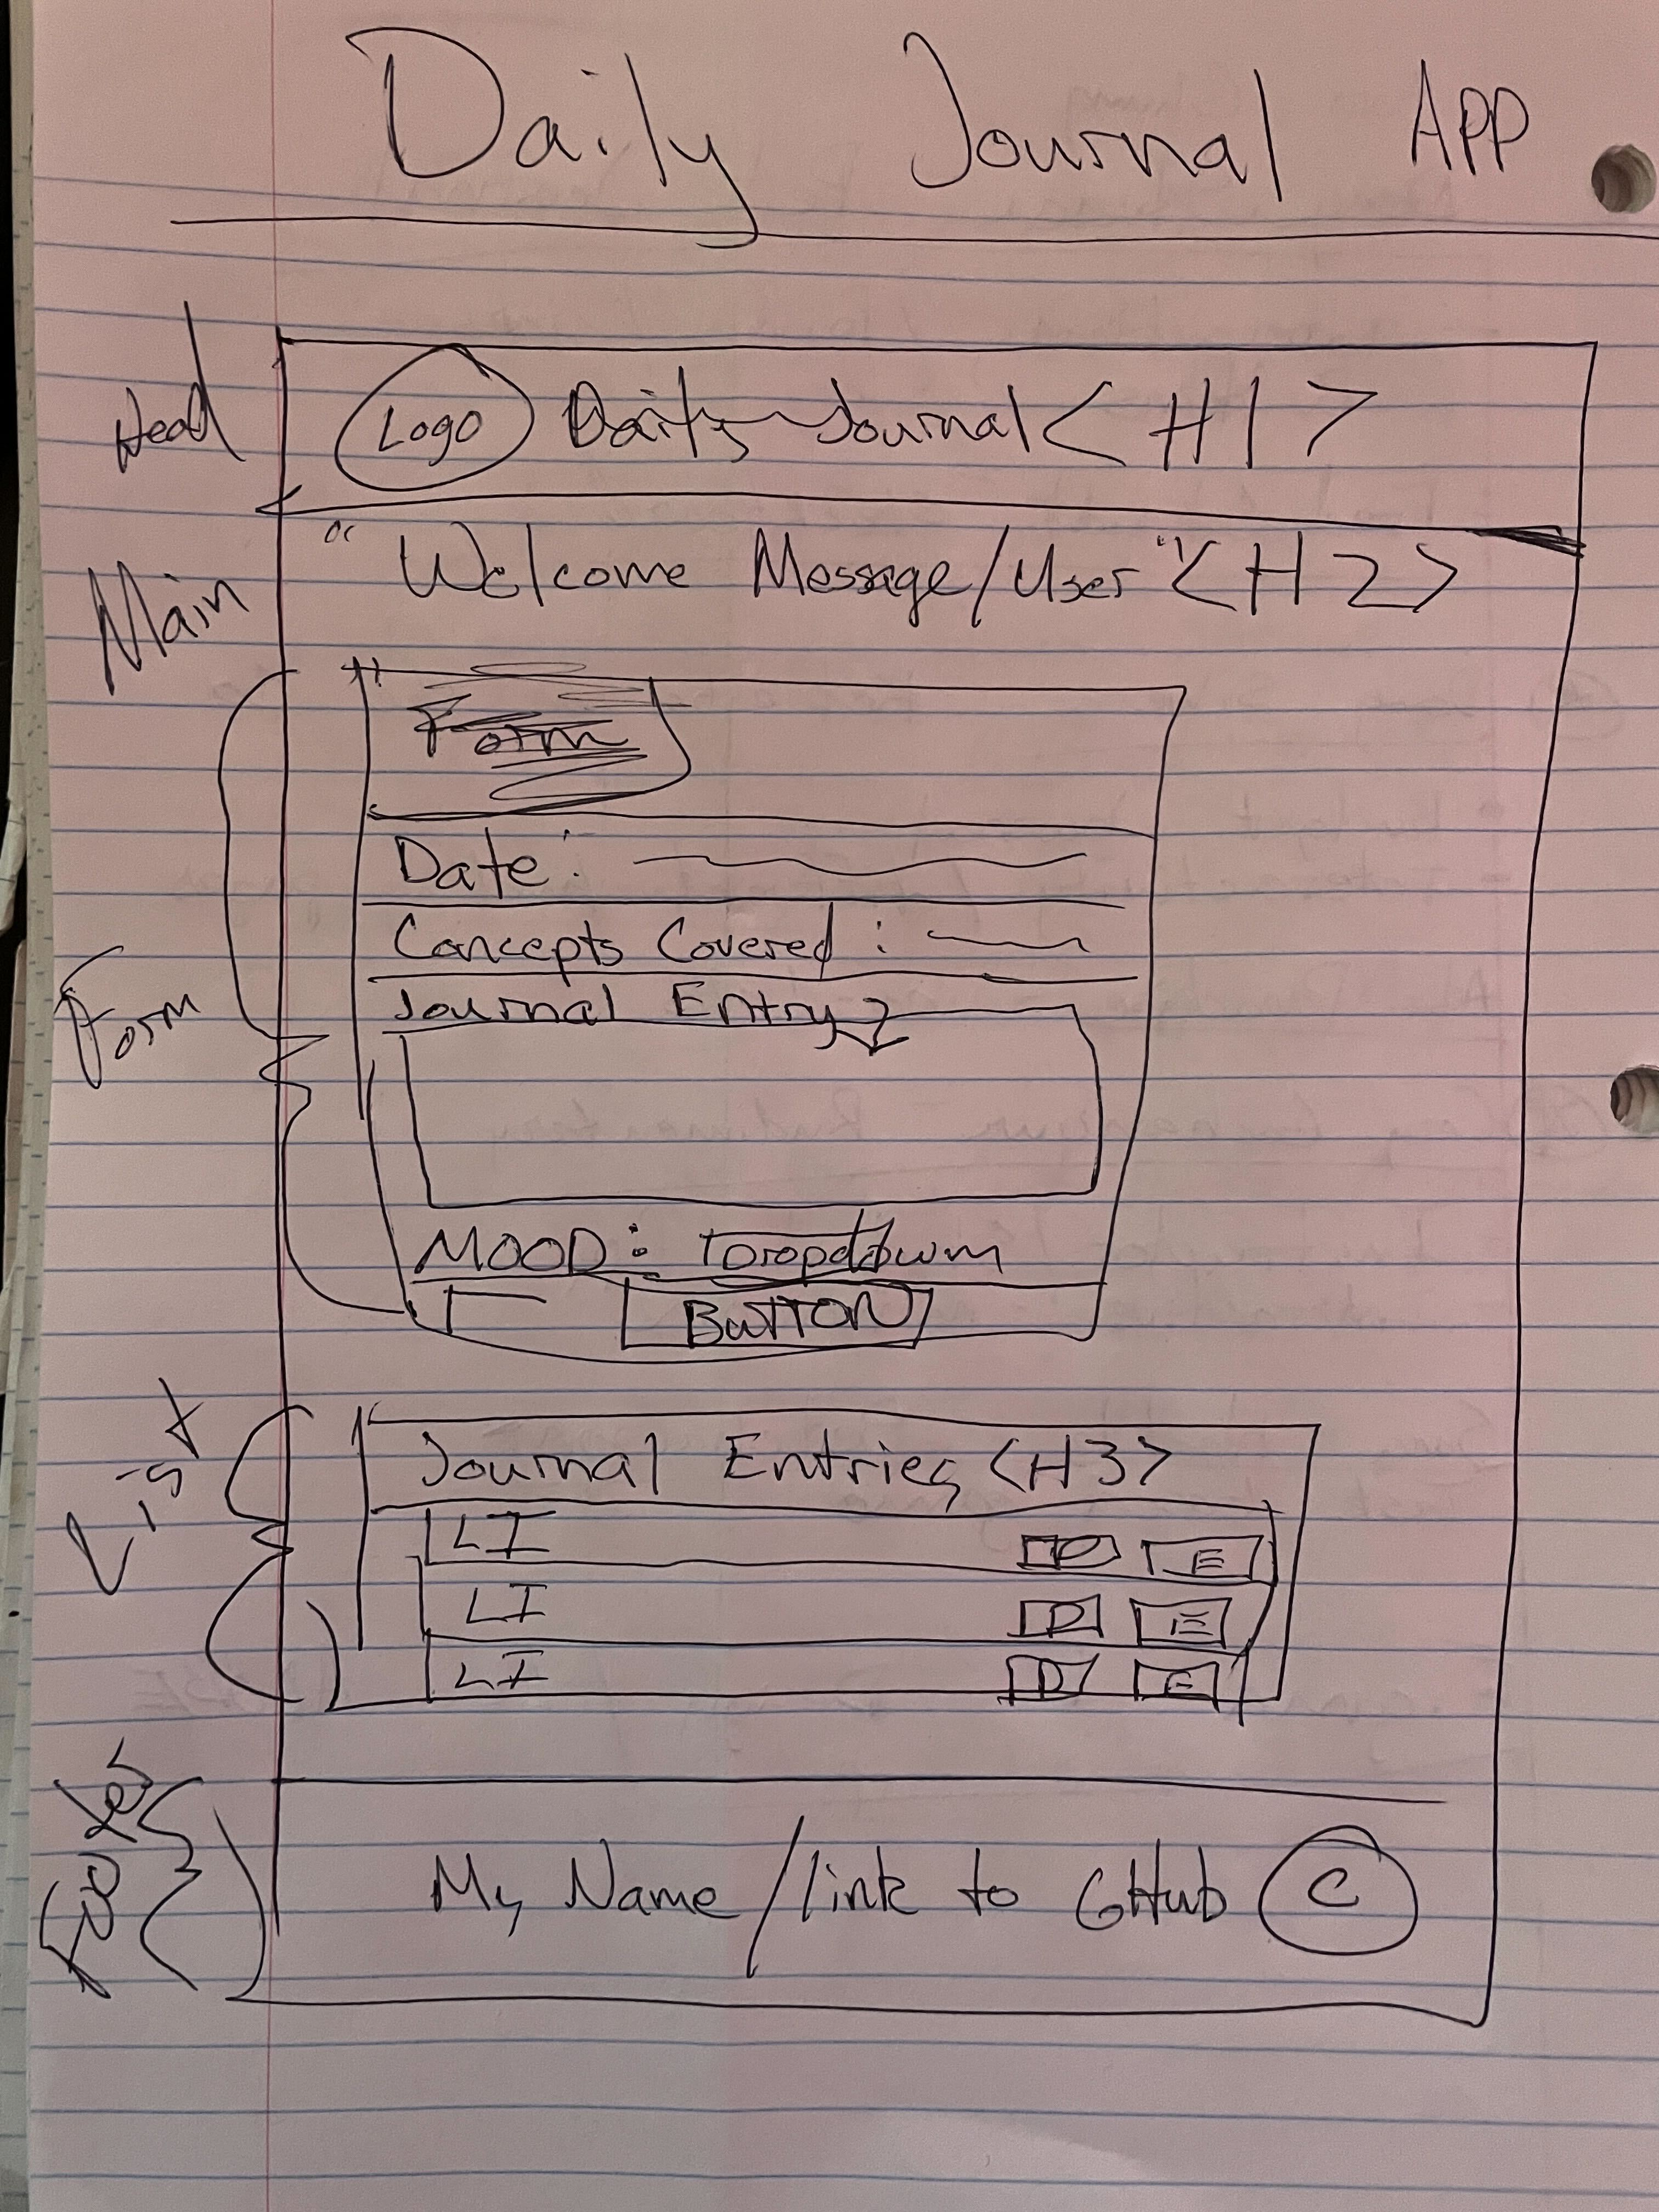 Daily Journal APP
Head
Logo Daily Journal <H1>
Main
"Welcome Message/User" <H2>
Form
Form
Date:
Concepts Covered:
Journal Entry
MOOD: Dropdown
BUTTON
List
Journal Entries <H3>
LI D E
LI D E
LI D E
Footer
My Name/link to GHub C